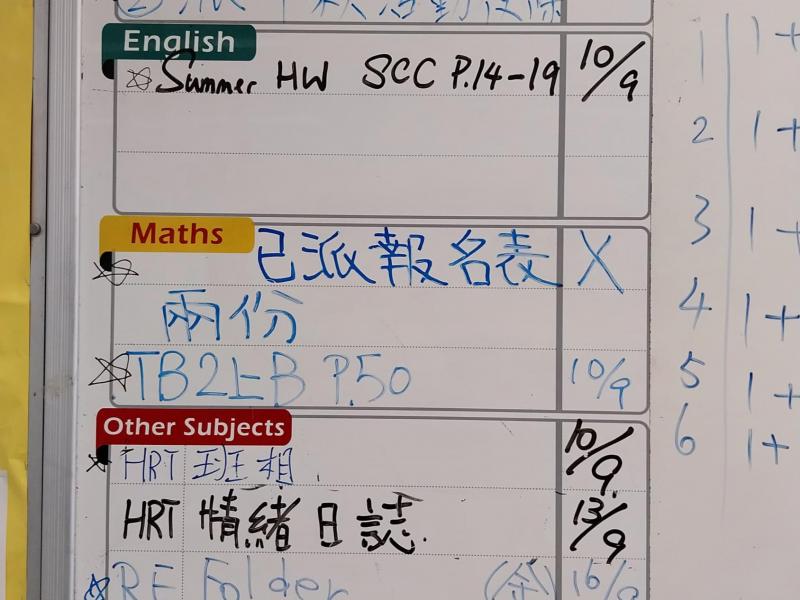 English
Summer HW SCC P.14-19 10/9
Maths
已派報名表 X
兩份
TB2上B P.50 10/9
Other Subjects
HRT 班相 10/9.
HRT 情緒日誌. 13/9
RE Folder 16/9
1 1+
2 1+
3 1+
4 1+
5 1+
6 1+